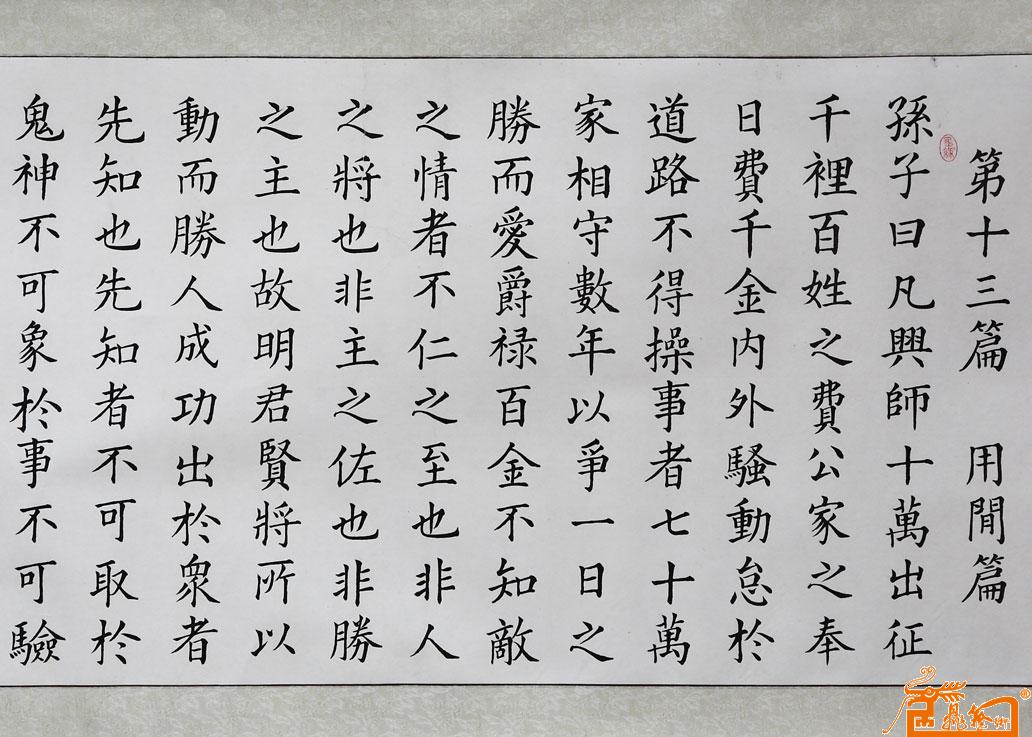 第十三篇 用間篇
孫子曰凡興師十萬出征
千裡百姓之費公家之奉
日費千金内外騷動怠於
道路不得操事者七十萬
家相守數年以爭一日之
勝而愛爵禄百金不知敵
之情者不仁之至也非人
之將也非主之佐也非勝
之主也故明君賢將所以
動而勝人成功出於衆者
先知也先知者不可取於
鬼神不可象於事不可驗